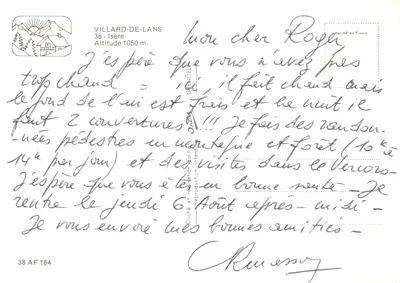 VILLARD-DE-LANS
38 - Isère
Altitude 1050 m.
mon cher Roger
J'espère que vous n'avez pas
trop chaud = ici, il fait chaud mais
le fond de l'air est frais et la nuit il
faut 2 couvertures !!! Je fais des randon-
nées pédestres en montagne et forêt (10k à
14k par jour) et des visites dans le Vercors-
J'espère que vous êtes en bonne santé - Je
rentre le jeudi 6 Août après-midi -
Je vous envoie mes bonnes amitiés -
38 AF 164